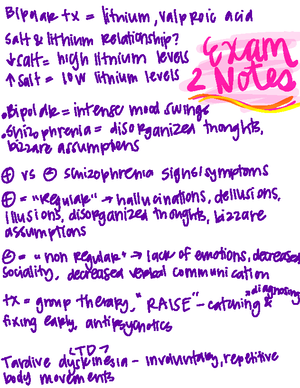 Bipolar tx = lithium, valproic acid
salt & lithium relationship?
↓ salt = high lithium levels
↑ salt = low lithium levels
Exam
2 Notes
• Bipolar = intense mood swings
• Shizophrenia = disorganized thoughts,
bizzare assumptions
⊕ vs ⊖ shizophrenia signs/symptoms
⊕ = "Regular" → hallucinations, dellusions,
illusions, disorganized thoughts, bizzare
assumptions
⊖ = "non Regular" → lack of emotions, decreased
sociality, decreased verbal communication
tx = group therapy, "RAISE" - catching &
diagnosing
fixing early, antipsycotics
(TD)
Tardive dyskinesia - involuntary, repetitive
body movements